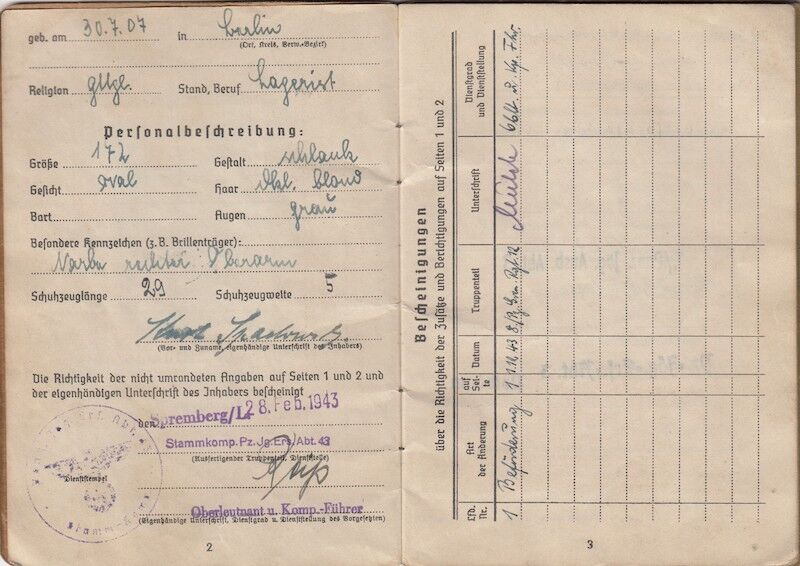 geb. am 30.7.07 in Berlin
(Ort, Kreis, Verw.-Bezirk)
Religion gttgl. Stand, Beruf Lagerist
Personalbeschreibung:
Größe 172 Gestalt schlank
Gesicht oval Haar dkl. blond
Bart Augen grau
Besondere Kennzeichen (z.B. Brillenträger):
Narbe rechter Oberarm
Schuhzeuglänge 29 Schuhzeugweite 5
Kurt
(Vor- und Zuname, eigenhändige Unterschrift des Inhabers)
Die Richtigkeit der nicht umrandeten Angaben auf Seiten 1 und 2 und
der eigenhändigen Unterschrift des Inhabers bescheinigt
den
Spremberg/L. 28. Feb. 1943
Stammkomp. Pz. Jg. Ers. Abt. 43
(Ausfertigender Truppenteil, Dienststelle)
Dienststempel
Oberleutnant u. Komp.-Führer
(Eigenhändige Unterschrift, Dienstgrad u. Dienststellung des Vorgesetzten)
2
Bescheinigungen
über die Richtigkeit der Zusätze und Berichtigungen auf Seiten 1 und 2
Lfd. Nr.
Art der Änderung
auf Seite
Datum
Truppenteil
Unterschrift
Dienstgrad und Dienststellung
1 Beförderung 1 1.11.43 8/Pz. Gren. Rgt. Oblt. u. Kp. Fhr.
3